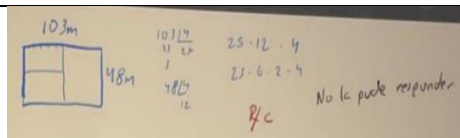 103m
48m
103 4
23 25
3
48 4
12
25 · 12 · 4
25 · 6 · 2 · 4
R/C
No la pude responder